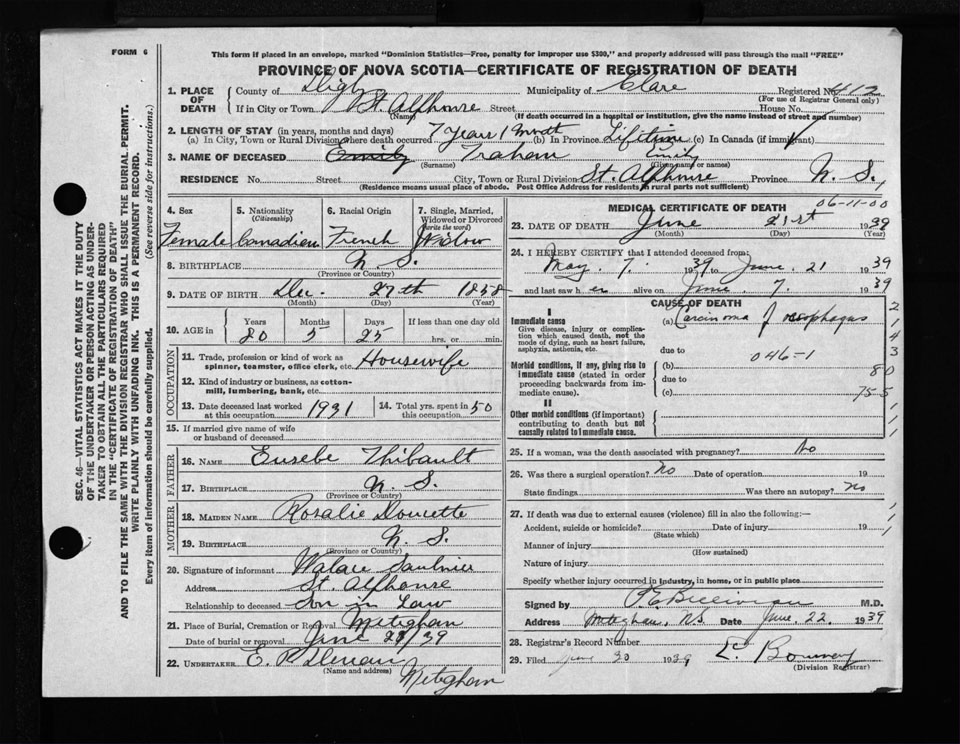 FORM 6
This form if placed in an envelope, marked "Dominion Statistics—Free, penalty for improper use $300," and properly addressed will pass through the mail "FREE"
PROVINCE OF NOVA SCOTIA—CERTIFICATE OF REGISTRATION OF DEATH
SEC. 46—VITAL STATISTICS ACT MAKES IT THE DUTY
OF THE UNDERTAKER OR PERSON ACTING AS UNDER-
TAKER TO OBTAIN ALL THE PARTICULARS REQUIRED
IN THE "CERTIFICATE OF REGISTRATION OF DEATH"
AND TO FILE THE SAME WITH THE DIVISION REGISTRAR WHO SHALL ISSUE THE BURIAL PERMIT.
WRITE PLAINLY WITH UNFADING INK. THIS IS A PERMANENT RECORD.
Every item of information should be carefully supplied. (See reverse side for instructions.)
1. PLACE OF DEATH County of Digby Municipality of Clare Registered No. 412
(For use of Registrar General only)
If in City or Town St. Alphonse Street House No.
(Name) (If death occurred in a hospital or institution, give the name instead of street and number)
2. LENGTH OF STAY (in years, months and days)
(a) In City, Town or Rural Division where death occurred 7 years 1 mnth (b) In Province Lifetime (c) In Canada (if immigrant)
3. NAME OF DECEASED Emily Trahan Emily
(Surname) (Given name or names)
RESIDENCE No. Street City, Town or Rural Division St. Alphonse Province N. S.
(Residence means usual place of abode. Post Office Address for residents in rural parts not sufficient)
4. Sex Female
5. Nationality (Citizenship) Canadian
6. Racial Origin French
7. Single, Married, Widowed or Divorced (write the word) Widow
8. BIRTHPLACE N. S.
(Province or Country)
9. DATE OF BIRTH Dec. 27th 1858
(Month) (Day) (Year)
10. AGE in Years Months Days If less than one day old
80 5 25 hrs. or min.
OCCUPATION
11. Trade, profession or kind of work as spinner, teamster, office clerk, etc. Housewife
12. Kind of industry or business, as cotton-mill, lumbering, bank, etc.
13. Date deceased last worked at this occupation 1931 14. Total yrs. spent in this occupation 50
15. If married give name of wife or husband of deceased
FATHER
16. NAME Eusebe Thibault
17. BIRTHPLACE N. S.
(Province or Country)
MOTHER
18. MAIDEN NAME Rosalie Doucette
19. BIRTHPLACE N. S.
(Province or Country)
20. Signature of informant Walace Saulnier
Address St. Alphonse
Relationship to deceased Son in Law
21. Place of Burial, Cremation or Removal Meteghan
Date of burial or removal June /39
22. UNDERTAKER E.
(Name and address) Meteghan
MEDICAL CERTIFICATE OF DEATH 06-11-00
23. DATE OF DEATH June 21st 1939
(Month) (Day) (Year)
24. I HEREBY CERTIFY that I attended deceased from:
May. 7. 1939 to June. 21 1939
and last saw her alive on June. 7. 1939
CAUSE OF DEATH
I
Immediate cause (a) Carcinoma of oesophagus
Give disease, injury or complica-
tion which caused death, not the
mode of dying, such as heart failure,
asphyxia, asthenia, etc.
due to
046-1
Morbid conditions, if any, giving rise to
immediate cause (stated in order
proceeding backwards from im-
mediate cause).
(b)
due to
(c)
II
Other morbid conditions (if important)
contributing to death but not
causally related to immediate cause.
2
1
4
3
80
755
1
1
1
25. If a woman, was the death associated with pregnancy? No
26. Was there a surgical operation? No Date of operation 19
State findings Was there an autopsy? No
27. If death was due to external causes (violence) fill in also the following:—
Accident, suicide or homicide? Date of injury 19
(State which)
Manner of injury
(How sustained)
Nature of injury
Specify whether injury occurred in industry, in home, or in public place
Signed by M.D.
Address Meteghan, N.S. Date June. 22. 1939
28. Registrar's Record Number
29. Filed June 30 1939
(Division Registrar)